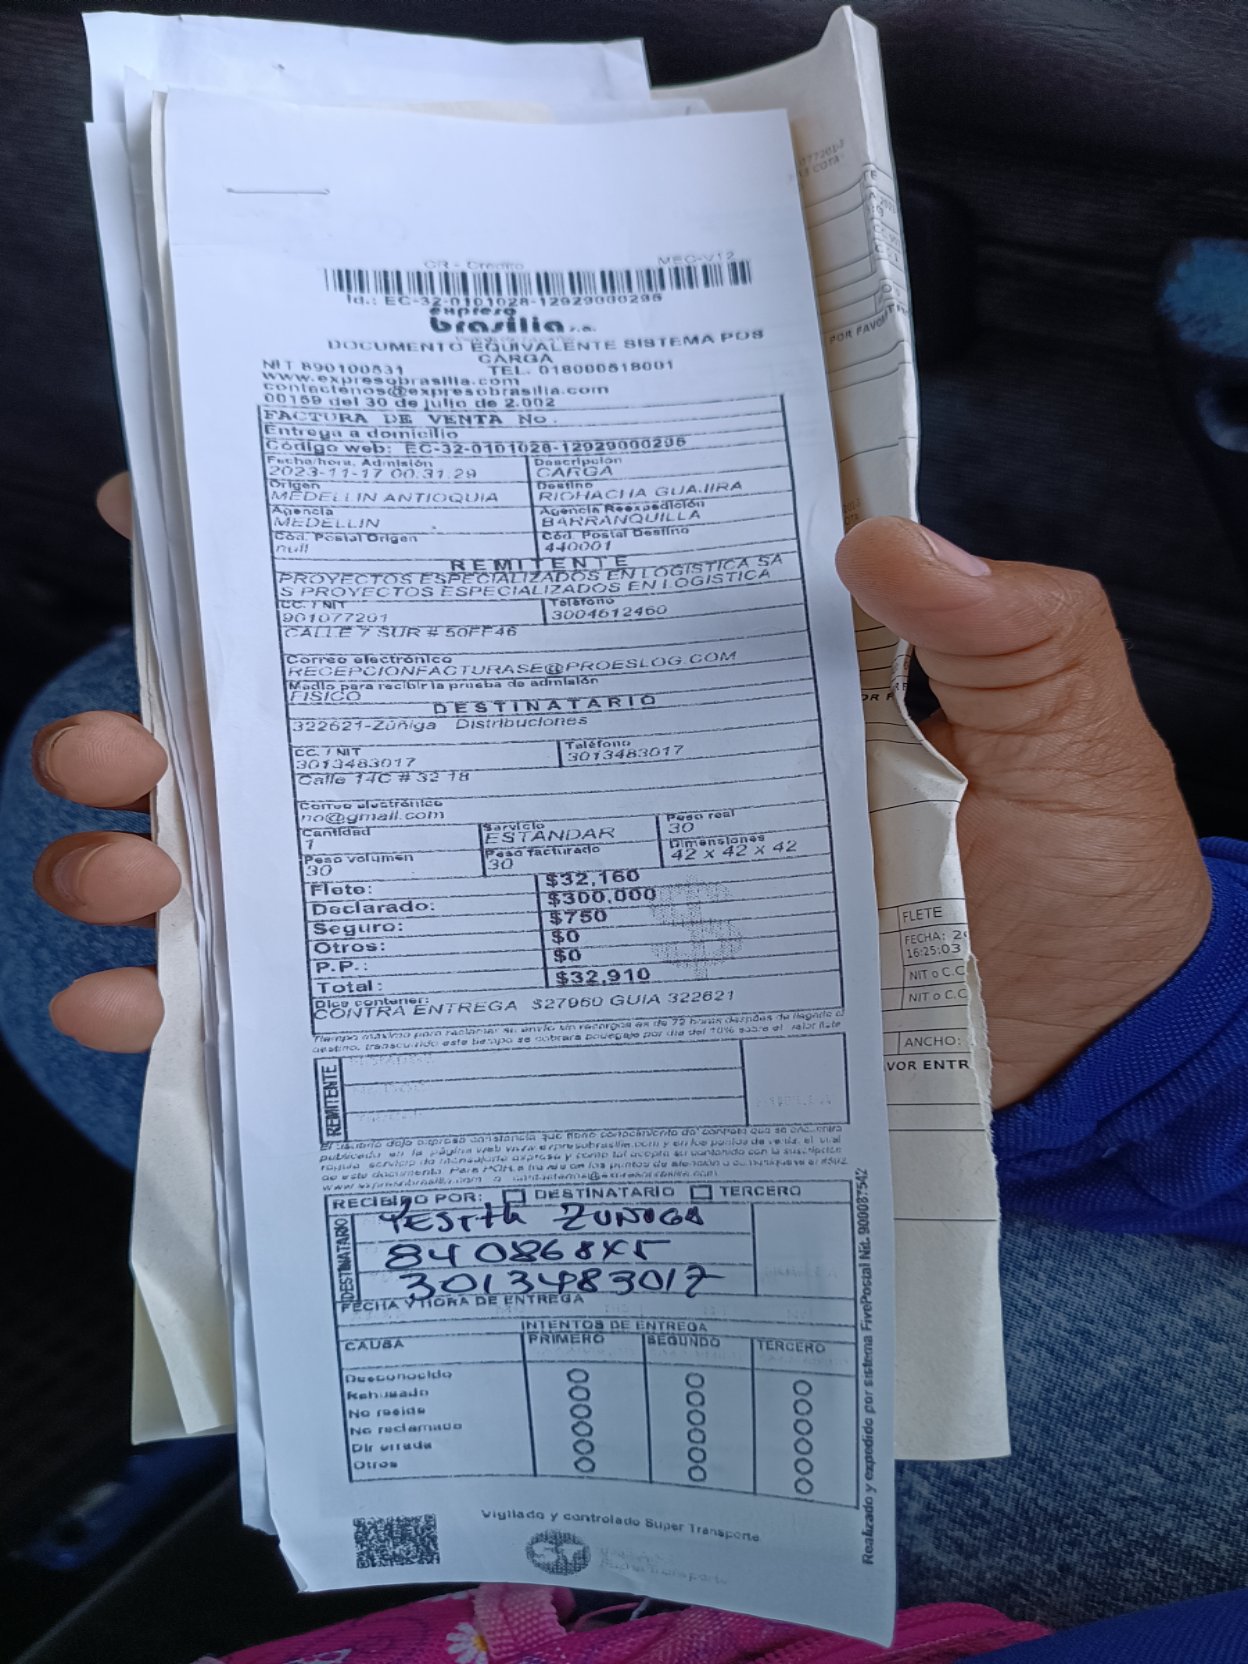 CR - Credito MEC-V12
Id.: EC-32-0101028-12929000296
expreso
brasilia s.a.
DOCUMENTO EQUIVALENTE SISTEMA POS
CARGA
NIT 890100531 TEL. 018000518001
www.expresobrasilia.com
contactenos@expresobrasilia.com
00159 del 30 de julio de 2.002
FACTURA DE VENTA No.
Entrega a domicilio
Código web: EC-32-0101028-12929000296
Fecha/hora. Admisión Descripción
2023-11-17 00.31.29 CARGA
Origen Destino
MEDELLIN ANTIOQUIA RIOHACHA GUAJIRA
Agencia Agencia Reexpedición
MEDELLIN BARRANQUILLA
Cód. Postal Origen Cód. Postal Destino
null 440001
REMITENTE
PROYECTOS ESPECIALIZADOS EN LOGISTICA SA
S PROYECTOS ESPECIALIZADOS EN LOGISTICA
CC. / NIT Teléfono
901077201 3004612460
CALLE 7 SUR # 50FF46
Correo electrónico
RECEPCIONFACTURASE@PROESLOG.COM
Medio para recibir la prueba de admisión
FISICO
DESTINATARIO
322621-Zúñiga Distribuciones
CC. / NIT Teléfono
3013483017 3013483017
Calle 14C # 32 18
Correo electrónico
no@gmail.com
Cantidad Servicio Peso real
1 ESTANDAR 30
Peso volumen Peso facturado Dimensiones
30 30 42 x 42 x 42
Flete: $32,160
Declarado: $300,000
Seguro: $750
Otros: $0
P.P.: $0
Total: $32,910
Dice contener:
CONTRA ENTREGA $27960 GUIA 322621
Tiempo máximo para reclamar su envío sin recargos es de 72 horas después de llegada a
destino, transcurrido este tiempo se cobrará bodegaje por día del 10% sobre el valor flete
REMITENTE
El usuario deja expresa constancia que tiene conocimiento del contrato que se encuentra
publicado en la página web www.expresobrasilia.com y en los puntos de venta, el cual
RECIBIDO POR: DESTINATARIO TERCERO
DESTINATARIO
YESITH ZUÑIGA
3013483017
FECHA Y HORA DE ENTREGA
INTENTOS DE ENTREGA
CAUSA PRIMERO SEGUNDO TERCERO
Desconocido
Rehusado
No reside
No reclamado
Dir errada
Otros
Vigilado y controlado Super Transporte
Realizado y expedido por sistema FivePostal Nit. 900087542
POR FAVO
FLETE
FECHA: 2
16:25:03
NIT o C.C
NIT o C.C
ANCHO:
VOR ENTR